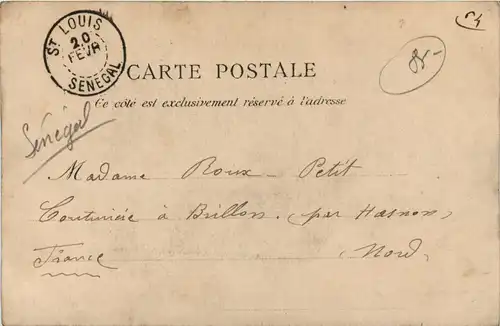 ST LOUIS
20
FEVR
SENEGAL
CARTE POSTALE
Ce côté est exclusivement réservé à l'adresse
Sénégal
Madame Roux-Petit
Couturière à Brillon. (par Hasnon)
France
Nord